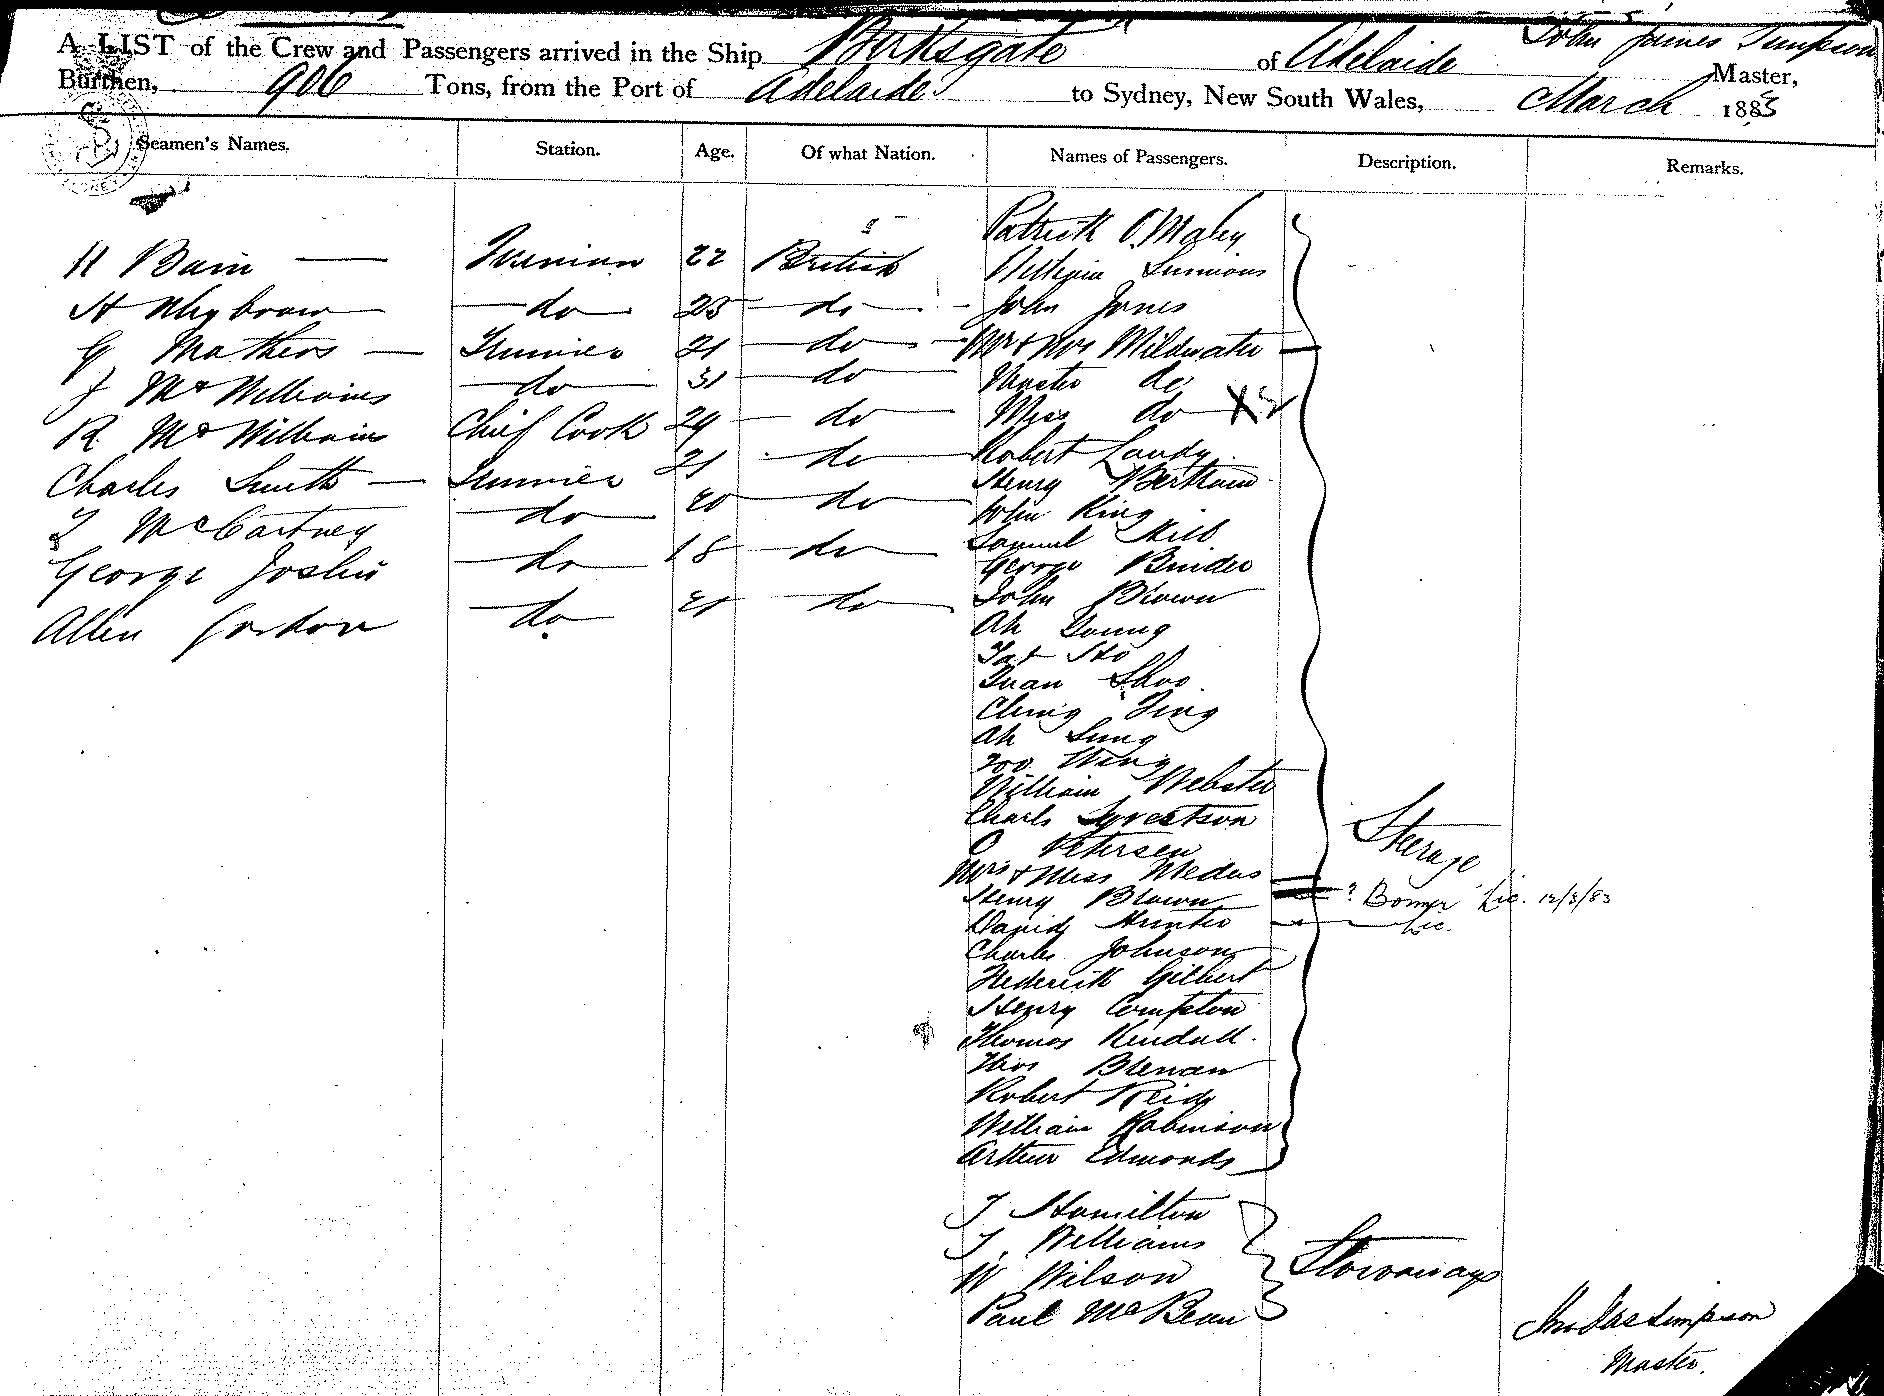 A LIST of the Crew and Passengers arrived in the Ship Birksgate of Adelaide John James Simpson Master,
Burthen, 906 Tons, from the Port of Adelaide to Sydney, New South Wales, March 1883
Seamen's Names. Station. Age. Of what Nation. Names of Passengers. Description. Remarks.
H Bain 22 British
A Whybrow do 23 do
G Mathers 21 do
J McWilliams do 31 do
R McWilliams Chief Cook 29 do
Charles Smith 21 do
McCartney do 20 do
George Joslin do 18 do
Allen Gordon do 21 do
Patrick O'Maley
William Simmons
John Jones
Mr & Mrs Mildwater
Master do
Miss do
Robert Landy
Henry Bertram
John King
Samuel Hill
George Binder
John Brown
Ah Young
Tat Sho
Tuan Shoo
Ching Ting
Ah Sung
Foo Wang
William Webster
Charls Syvertson
C Petersen
Mrs & Miss Medus
Henry Brown
David Hunter
Charles Johnson
Frederick Gilbert
Henry Compton
Thomas Kendall
Thos Brenan
Robert Reid
William Robinson
Arthur Edmonds
Steerage
? Bomyr Lic. 12/3/83
Lic.
J Hamilton
J. Williams
W Wilson
Paul McBean
Stowaways
Jno Jas Simpson
Master.